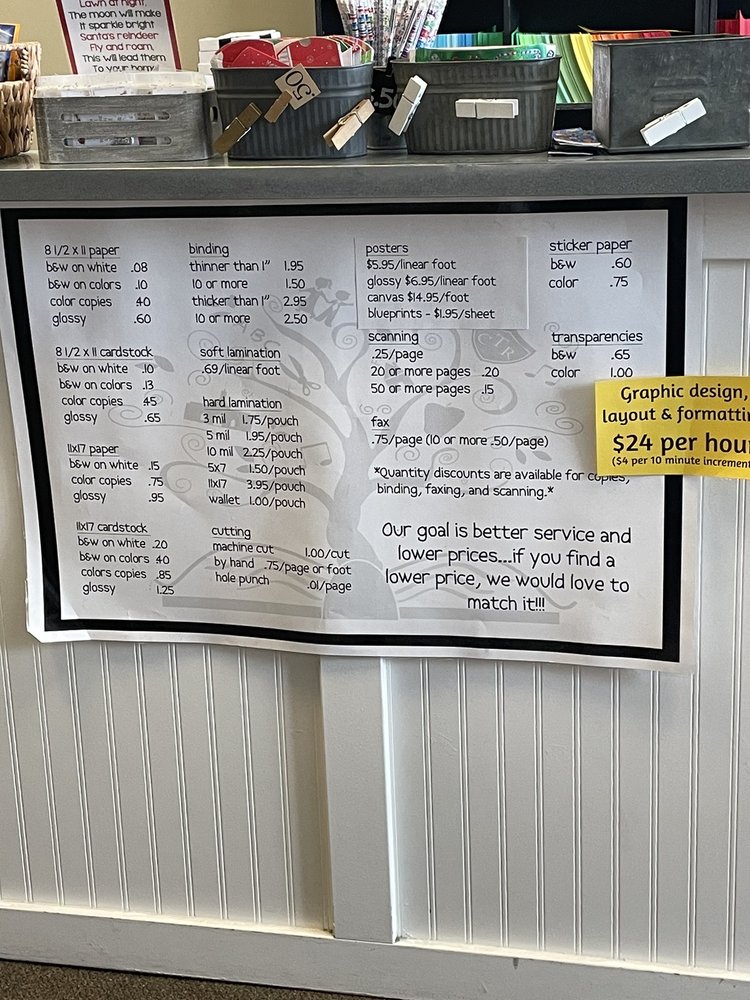 Lawn at night,
The moon will make
it sparkle bright
Santa's reindeer
Fly and roam,
This will lead them
To your home
50
.50
8 1/2 x 11 paper
b&w on white .08
b&w on colors .10
color copies 40
glossy .60
8 1/2 x 11 cardstock
b&w on white .10
b&w on colors .13
color copies 45
glossy .65
11x17 paper
b&w on white .15
color copies .75
glossy .95
11x17 cardstock
b&w on white .20
b&w on colors 40
colors copies .85
glossy 1.25
binding
thinner than 1" 1.95
10 or more 1.50
thicker than 1" 2.95
10 or more 2.50
soft lamination
.69/linear foot
hard lamination
3 mil 1.75/pouch
5 mil 1.95/pouch
10 mil 2.25/pouch
5x7 1.50/pouch
11x17 3.95/pouch
wallet 1.00/pouch
cutting
machine cut 1.00/cut
by hand .75/page or foot
hole punch .01/page
posters
$5.95/linear foot
glossy $6.95/linear foot
canvas $14.95/foot
blueprints - $1.95/sheet
scanning
.25/page
20 or more pages .20
50 or more pages .15
fax
.75/page (10 or more .50/page)
*Quantity discounts are available for copies,
binding, faxing, and scanning.*
Our goal is better service and
lower prices...if you find a
lower price, we would love to
match it!!!
sticker paper
b&w .60
color .75
transparencies
b&w .65
color 1.00
Graphic design,
layout & formattin
$24 per hour
($4 per 10 minute increment
ABC
CTR